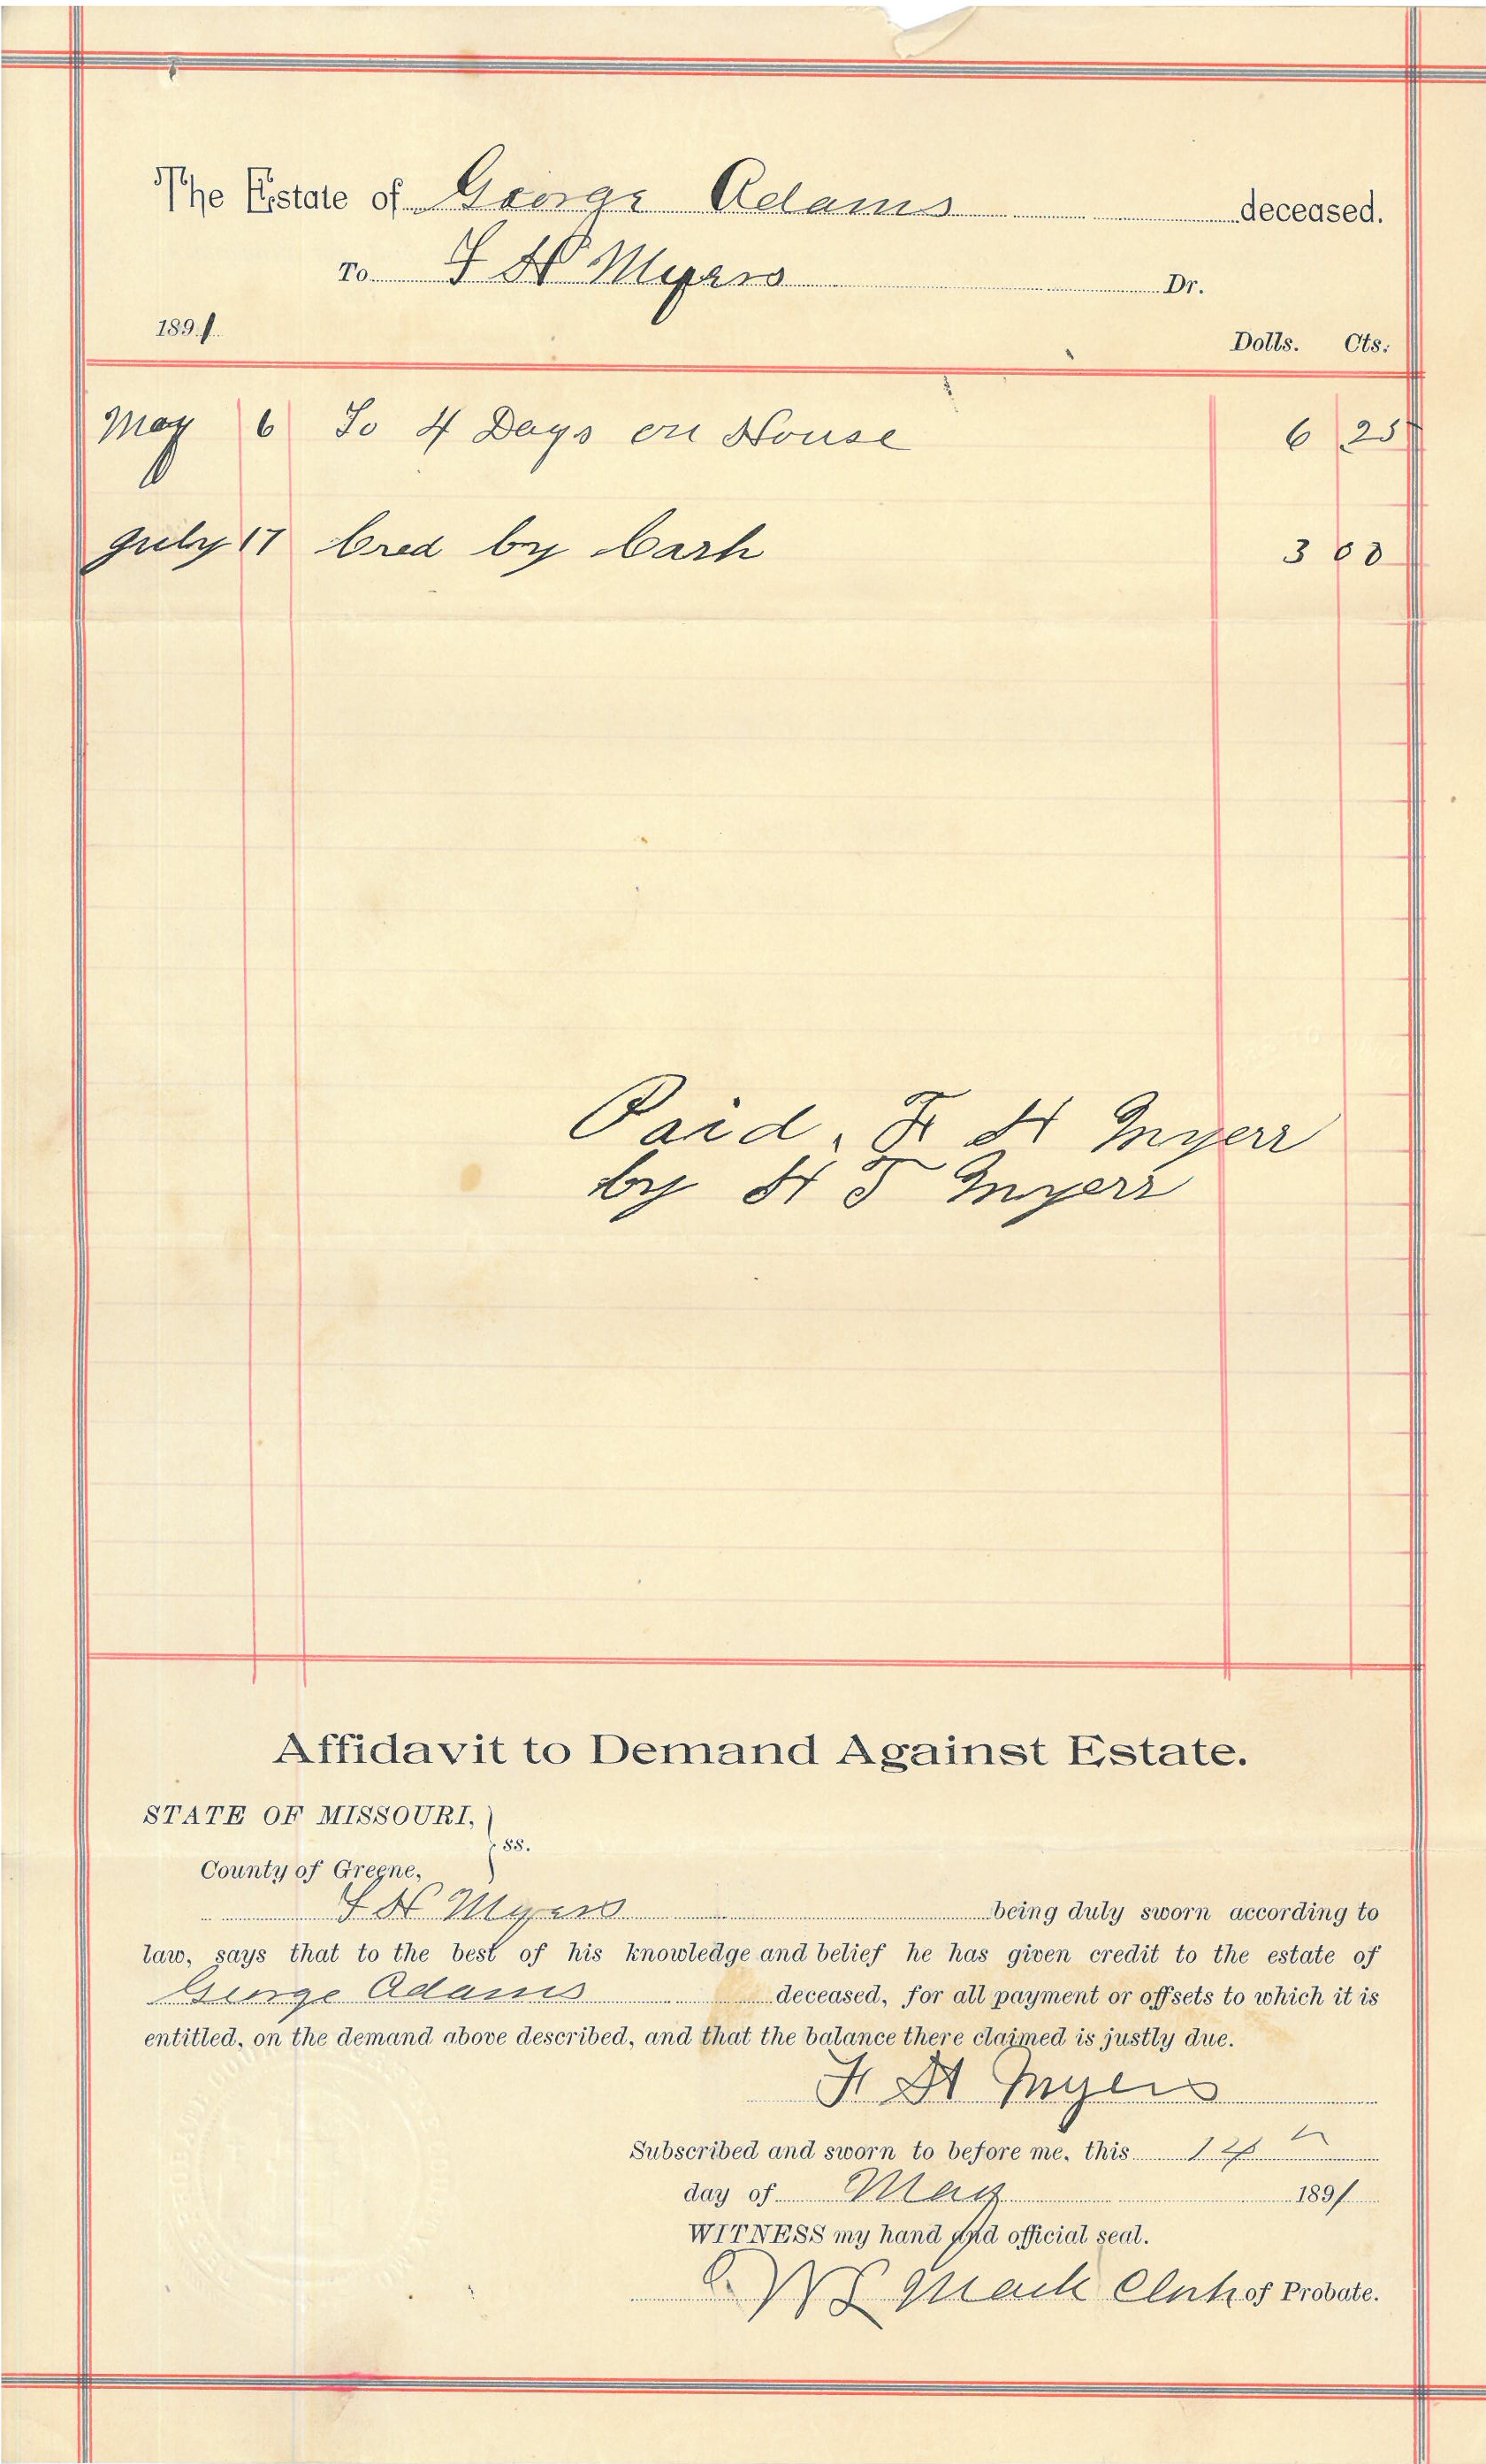 The Estate of George Adams deceased.
To F H Myers Dr.
1891 Dolls. Cts.
May 6 To 4 Days on House 6 25
July 17 Cred by Cash 3 00
Paid. F H Myers
by H T Myers
Affidavit to Demand Against Estate.
STATE OF MISSOURI,
ss.
County of Greene,
F H Myers being duly sworn according to
law, says that to the best of his knowledge and belief he has given credit to the estate of
George Adams deceased, for all payment or offsets to which it is
entitled, on the demand above described, and that the balance there claimed is justly due.
F H Myers
Subscribed and sworn to before me, this 14
day of May 1891
WITNESS my hand and official seal.
Clerk of Probate.